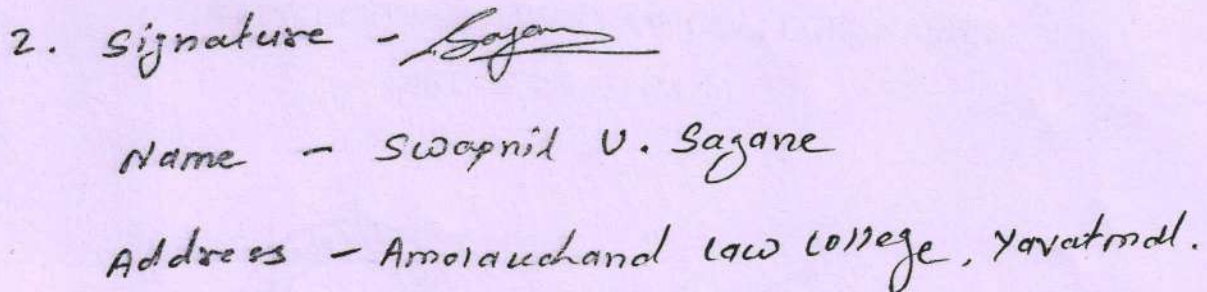 2. Signature - Sagane
Name - Swapnil V. Sagane
Address - Amolakchand Law College, Yavatmal.